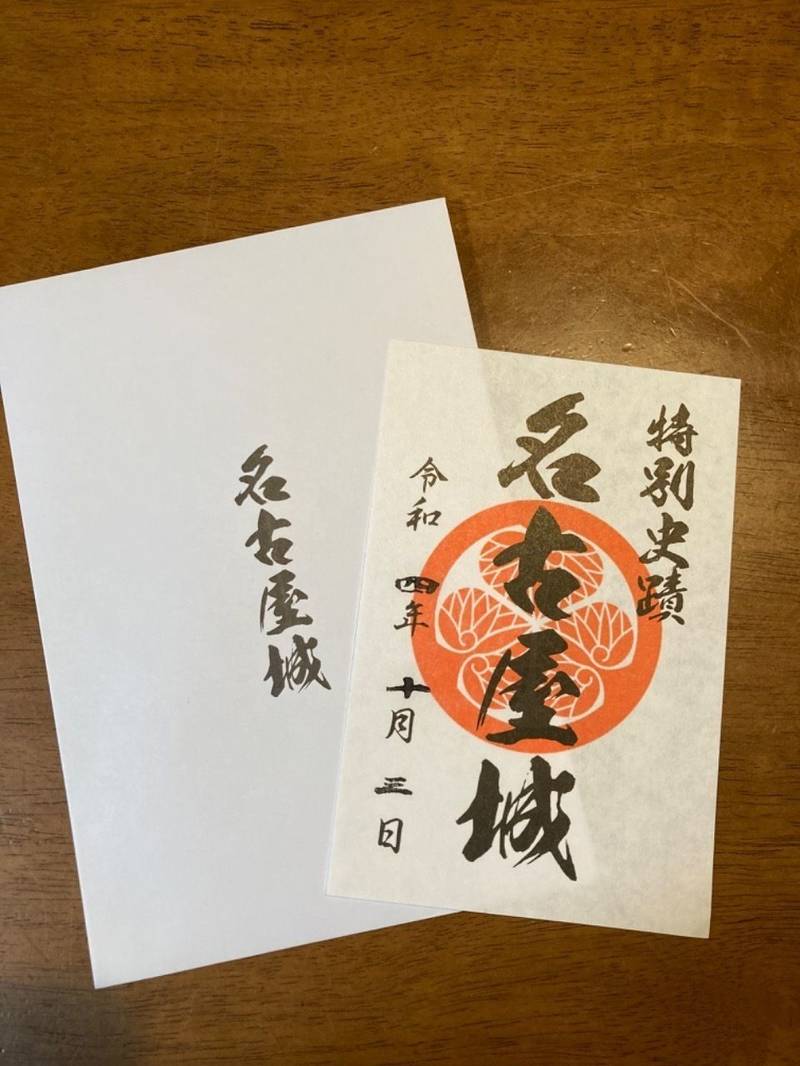 特別史蹟
名古屋城
令和四年十月三日
名古屋城